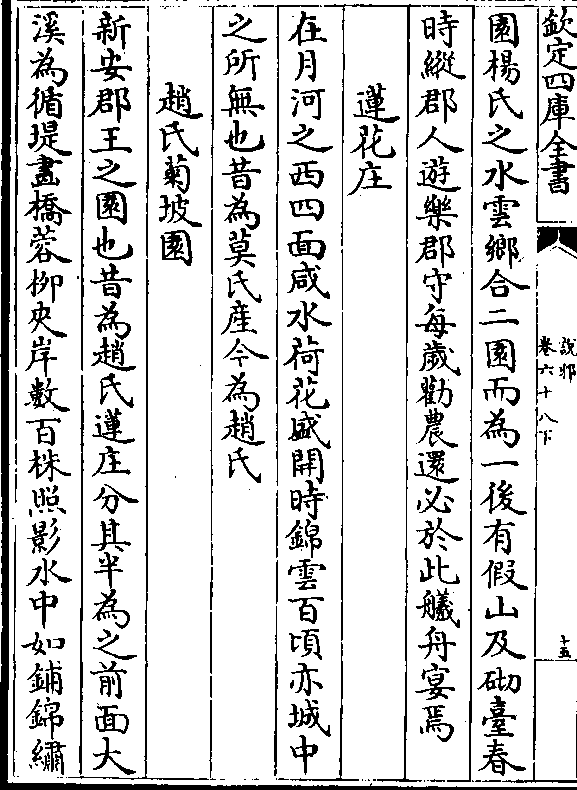 欽定四庫全書
說郛
卷六十八下
十五
園楊氏之水雲鄉合二園而為一後有假山及砌臺春
時縱郡人遊樂郡守每歲勸農還必於此艤舟宴焉
蓮花庄
在月河之西四面咸水荷花盛開時錦雲百頃亦城中
之所無也昔為莫氏產今為趙氏
趙氏菊坡園
新安郡王之園也昔為趙氏蓮庄分其半為之前面大
溪為循堤畫橋蓉柳夾岸數百株照影水中如鋪錦繡